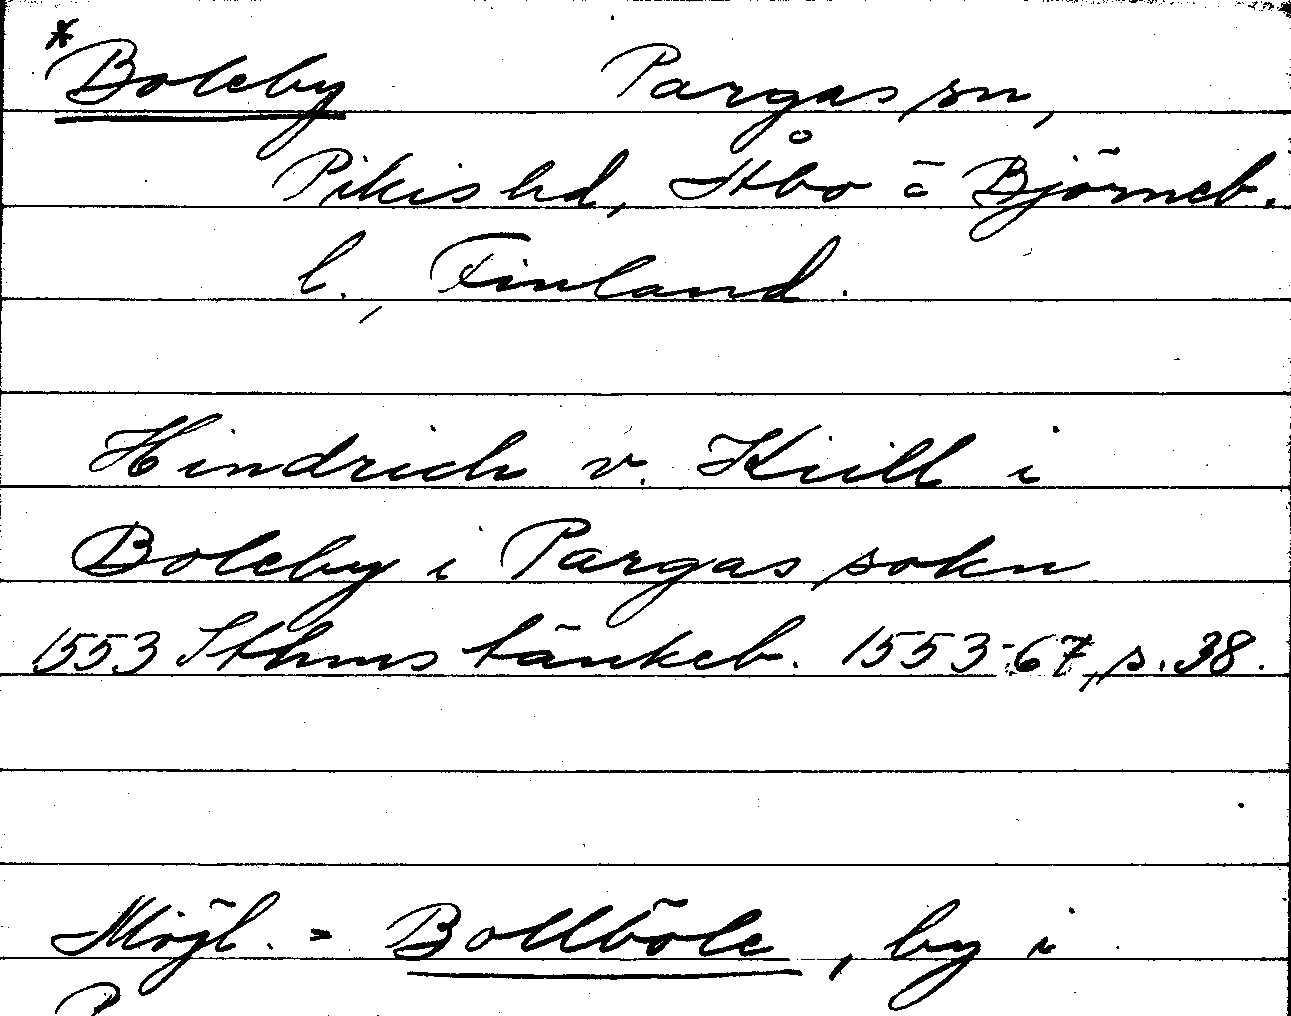 * Boleby Pargas sn,
Pikis hd, Åbo o Björneb.
l., Finland.
Hindrich v. Kiill i
Boleby i Pargas sokn
1553 Sthms tänkeb. 1553-67, s. 38.
Möjl. = Bollböle, by i